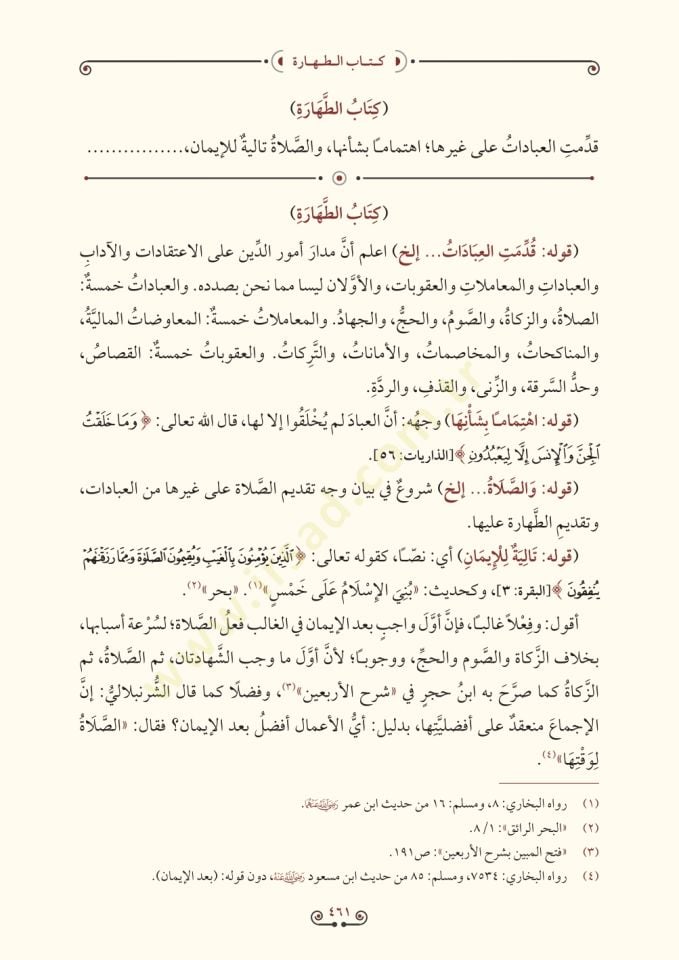 كتاب الطهارة
(كِتَابُ الطَّهَارَةِ)
قدِّمتِ العباداتُ على غيرها؛ اهتمامـًا بشأنها، والصَّلاةُ تاليةٌ للإيمان،................
(كِتَابُ الطَّهَارَةِ)
(قوله: قُدِّمَتِ العِبَادَاتُ... إلخ) اعلم أنَّ مدارَ أمور الدِّين على الاعتقادات والآدابِ
والعباداتِ والمعاملاتِ والعقوبات، والأوَّلان ليسا مما نحن بصدده. والعباداتُ خمسةٌ:
الصلاةُ، والزكاةُ، والصَّومُ، والحجُّ، والجهادُ. والمعاملاتُ خمسةٌ: المعاوضاتُ الماليَّةُ،
والمناكحاتُ، والمخاصماتُ، والأماناتُ، والتَّرِكاتُ. والعقوباتُ خمسةٌ: القصاصُ،
وحدُّ السَّرقة، والزِّنى، والقذفِ، والردَّةِ.
(قوله: اهْتِمَامـًا بِشَأْنِهَا) وجهُه: أنَّ العبادَ لم يُخْلَقُوا إلا لها، قال الله تعالى: ﴿وَمَا خَلَقْتُ
ٱلْجِنَّ وَٱلْإِنسَ إِلَّا لِيَعْبُدُونِ﴾ [الذاريات: ٥٦].
(قوله: وَالصَّلَاةُ... إلخ) شروعٌ في بيان وجه تقديم الصَّلاة على غيرها من العبادات،
وتقديمِ الطَّهارة عليها.
(قوله: تَالِيَةٌ لِلْإِيمَانِ) أي: نصّـًا، كقوله تعالى: ﴿ٱلَّذِينَ يُؤْمِنُونَ بِٱلْغَيْبِ وَيُقِيمُونَ ٱلصَّلَوٰةَ وَمِمَّا رَزَقْنَٰهُمْ
يُنفِقُونَ﴾ [البقرة: ٣]، وكحديث: «بُنِيَ الإِسْلَامُ عَلَى خَمْسٍ»(١). «بحر»(٢).
أقول: وفِعْلاً غالبـًا، فإنَّ أوَّلَ واجبٍ بعد الإيمان في الغالب فعلُ الصَّلاة؛ لسُرْعة أسبابها،
بخلاف الزَّكاة والصَّوم والحجِّ، ووجوبـًا؛ لأنَّ أوَّلَ ما وجب الشَّهادتان، ثم الصَّلاةُ، ثم
الزَّكاةُ كما صرَّحَ به ابنُ حجرٍ في «شرح الأربعين»(٣)، وفضلًا كما قال الشُّرنبلاليُّ: إنَّ
الإجماعَ منعقدٌ على أفضليَّتِها، بدليل: أيُّ الأعمال أفضلُ بعد الإيمان؟ فقال: «الصَّلَاةُ
لِوَقْتِهَا»(٤).
(١) رواه البخاري: ٨، ومسلم: ١٦ من حديث ابن عمر رَضِيَ اللهُ عَنْهُمَا.
(٢) «البحر الرائق»: ١/ ٨.
(٣) «فتح المبين بشرح الأربعين»: ص١٩١.
(٤) رواه البخاري: ٧٥٣٤، ومسلم: ٨٥ من حديث ابن مسعود رَضِيَ اللهُ عَنْهُ، دون قوله: (بعد الإيمان).
٤٦١